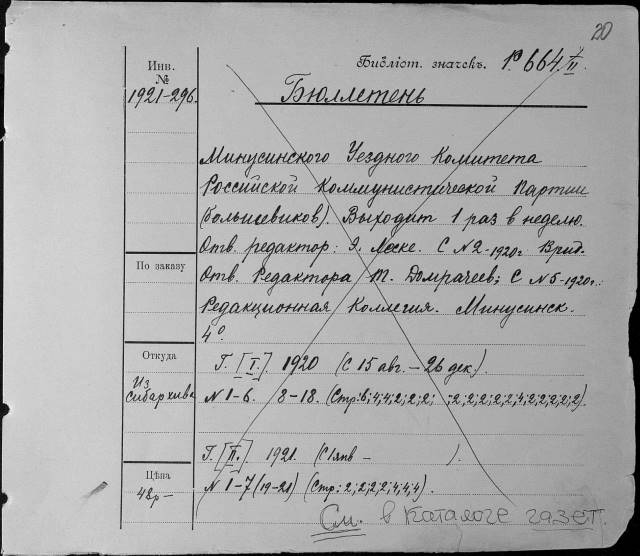 20
Инв. №
1921-296.
Библіот. значекъ. 1º664 I/II
Бюллетень
Минусинского Уездного Комитета
Российской Коммунистической Партии
(большевиков). Выходит 1 раз в неделю.
Отв. редактор: Э. Леске. С N2-1920г. Врид.
Отв. Редактора Т. Домрачеев; С N5-1920г.:
Редакционная Коллегия. Минусинск.
4º
По заказу
Откуда
Из
Сибархива
Г. [I]. 1920 (С 15 авг. – 26 дек.).
N 1-6. 8-18. (Стр: 6; 4; 4; 2; 2; 2; ;2; 2; 2; 2; 2; 4; 2; 2; 2; 2; 2)
Г. [II]. 1921. (С 1 янв – ).
N 1-7 (19-21) (Стр: 2; 2; 2; 2; 4; 4; 4).
Цѣна
48р-
См. в каталоге газет.